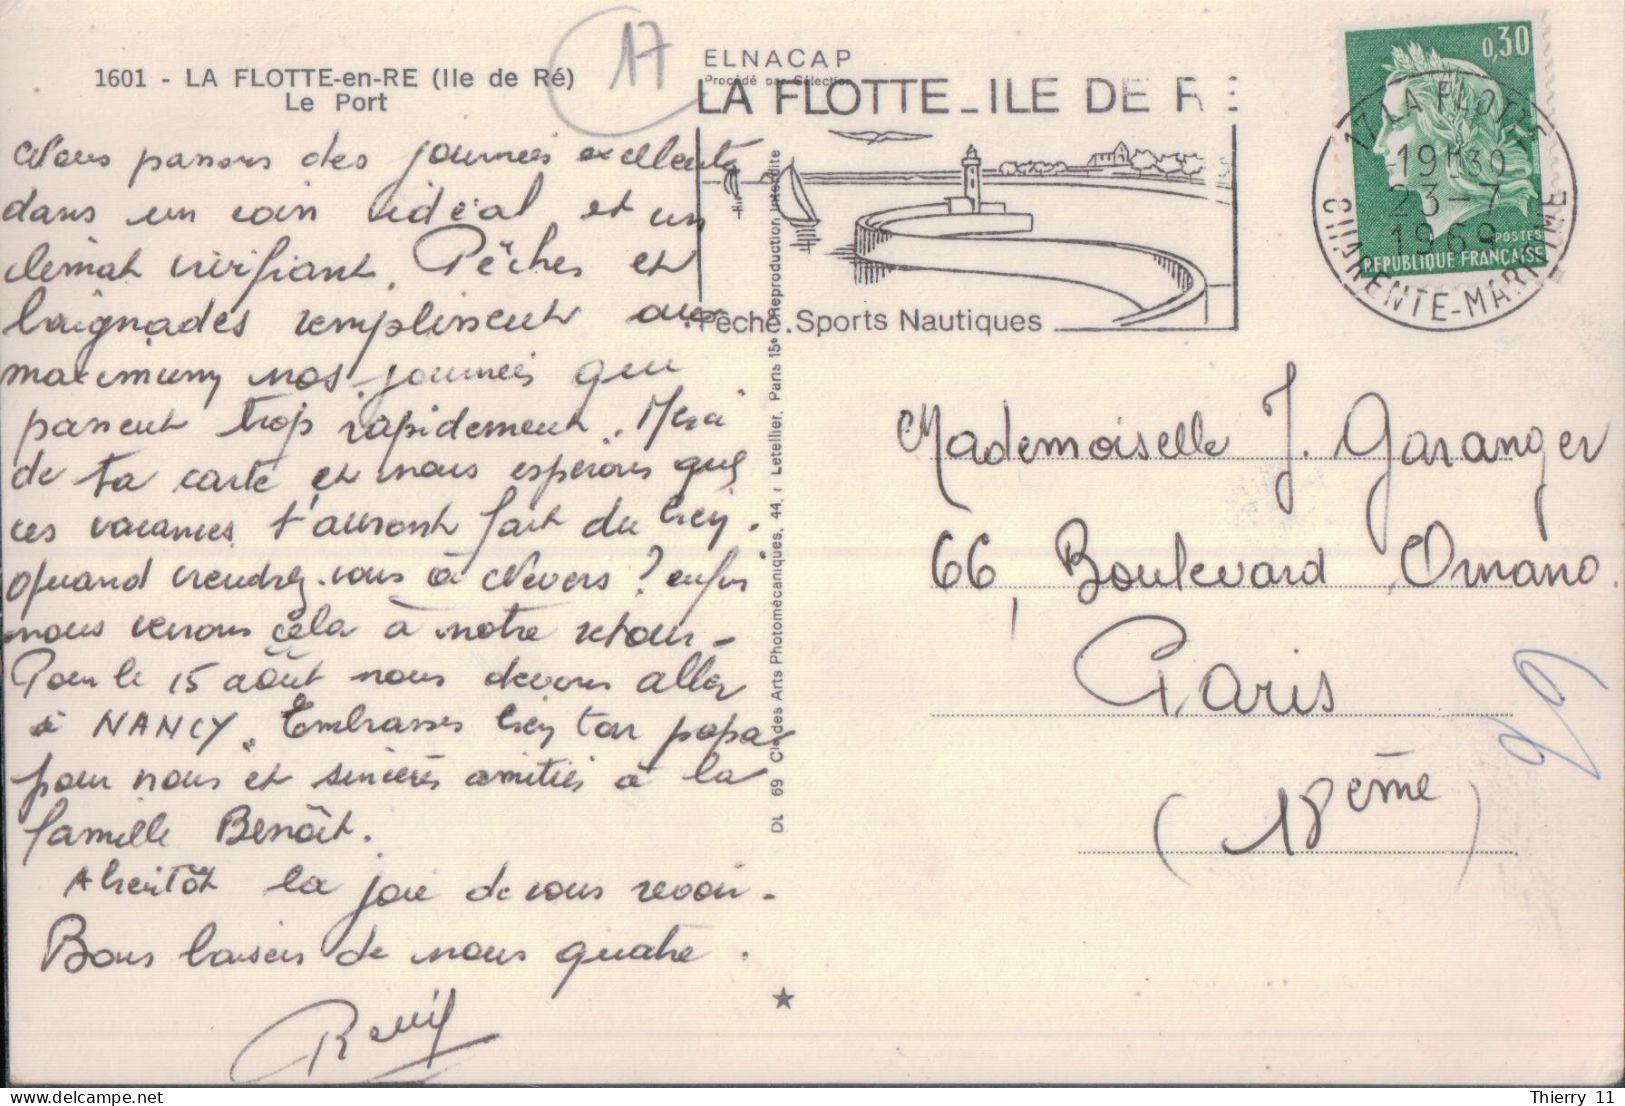 1601 - LA FLOTTE-en-RE (Ile de Ré)
Le Port
17
ELNACAP
Procédé par Sélection
LA FLOTTE - ILE DE RE
Pêche. Sports Nautiques
0,30
POSTES
REPUBLIQUE FRANÇAISE
17 LA FLOTTE
19H30
23-7
1969
CHARENTE-MARITIME
Nous passons des journées excellentes
dans un coin idéal et un
climat vivifiant. Pêches et
baignades remplissent au
maximum nos journées qui
passent trop rapidement. Merci
de ta carte et nous espérons que
ces vacances t'auront fait du bien.
Quand viendrez-vous à Nevers ? enfin
nous verrons cela à notre retour -
Pour le 15 août nous devons aller
à NANCY. Embrasses bien ton papa
pour nous et sincères amitiés à la
famille Benoît.
A bientôt la joie de vous revoir.
Bons baisers de nous quatre.
DL 69 Cie des Arts Photomécaniques, 44, r. Letellier, Paris 15e Reproduction interdite
Mademoiselle J. Garanger
66, Boulevard Ornano.
Paris
(18ème)
Thierry 11